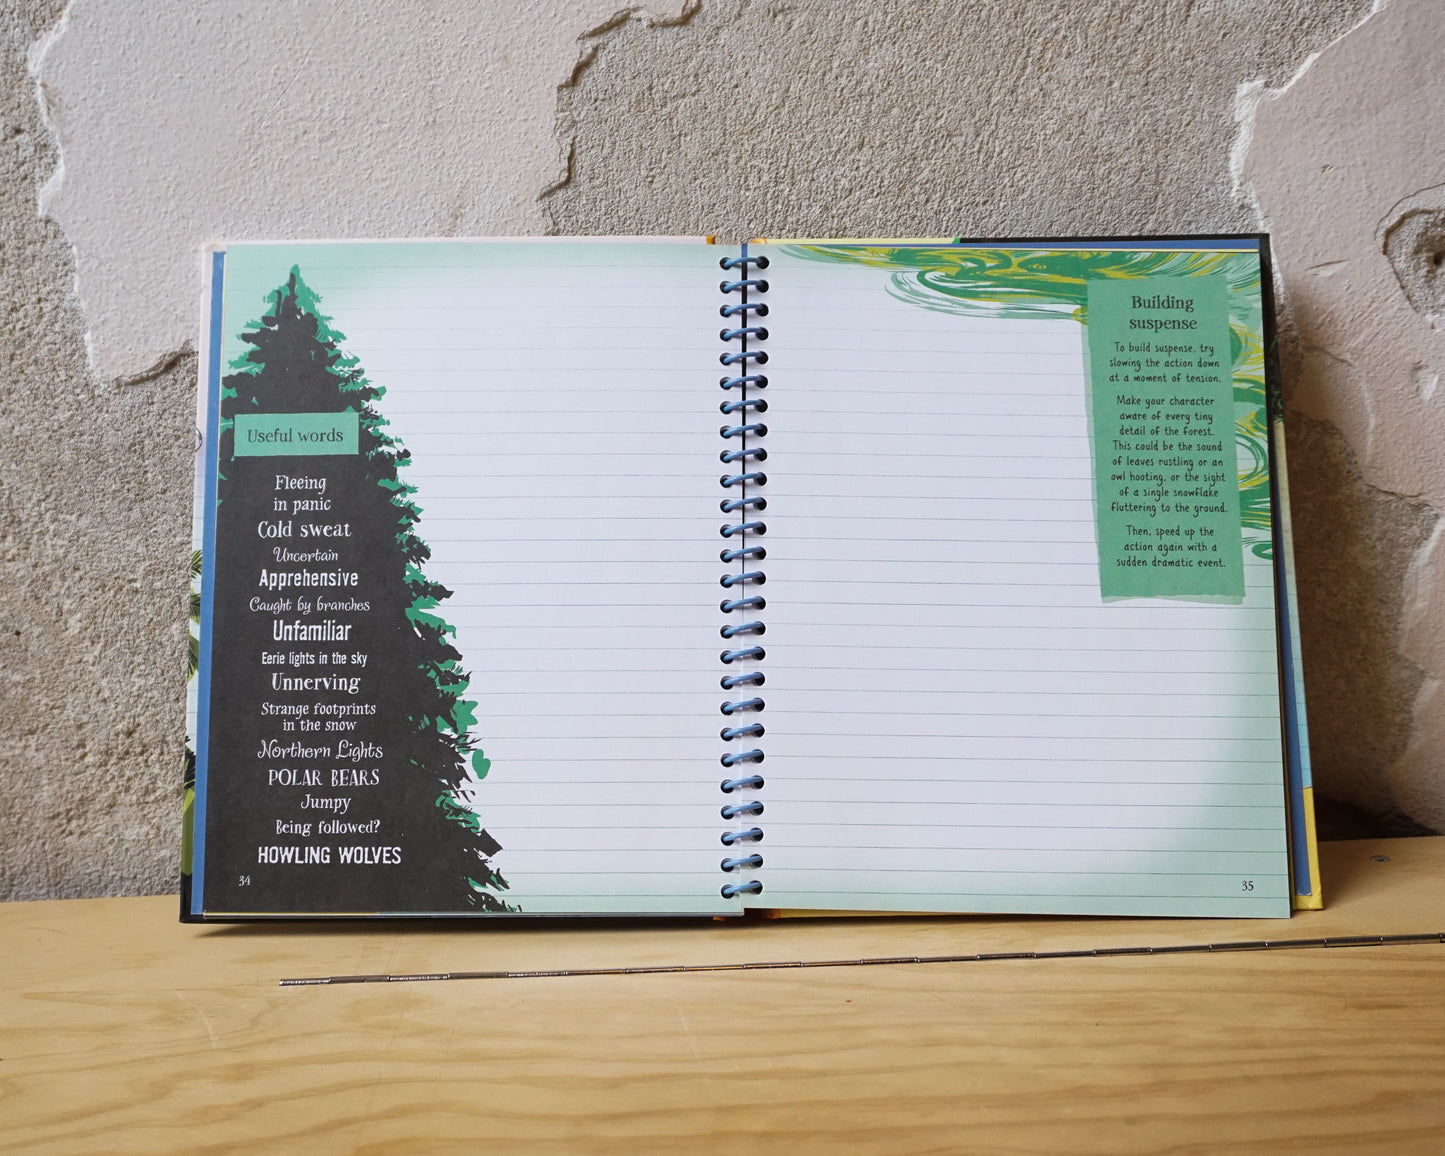 Useful words
Fleeing
in panic
Cold sweat
Uncertain
Apprehensive
Caught by branches
Unfamiliar
Eerie lights in the sky
Unnerving
Strange footprints
in the snow
Northern Lights
POLAR BEARS
Jumpy
Being followed?
HOWLING WOLVES
34
Building
suspense
To build suspense, try
slowing the action down
at a moment of tension.
Make your character
aware of every tiny
detail of the forest.
This could be the sound
of leaves rustling or an
owl hooting, or the sight
of a single snowflake
fluttering to the ground.
Then, speed up the
action again with a
sudden dramatic event.
35